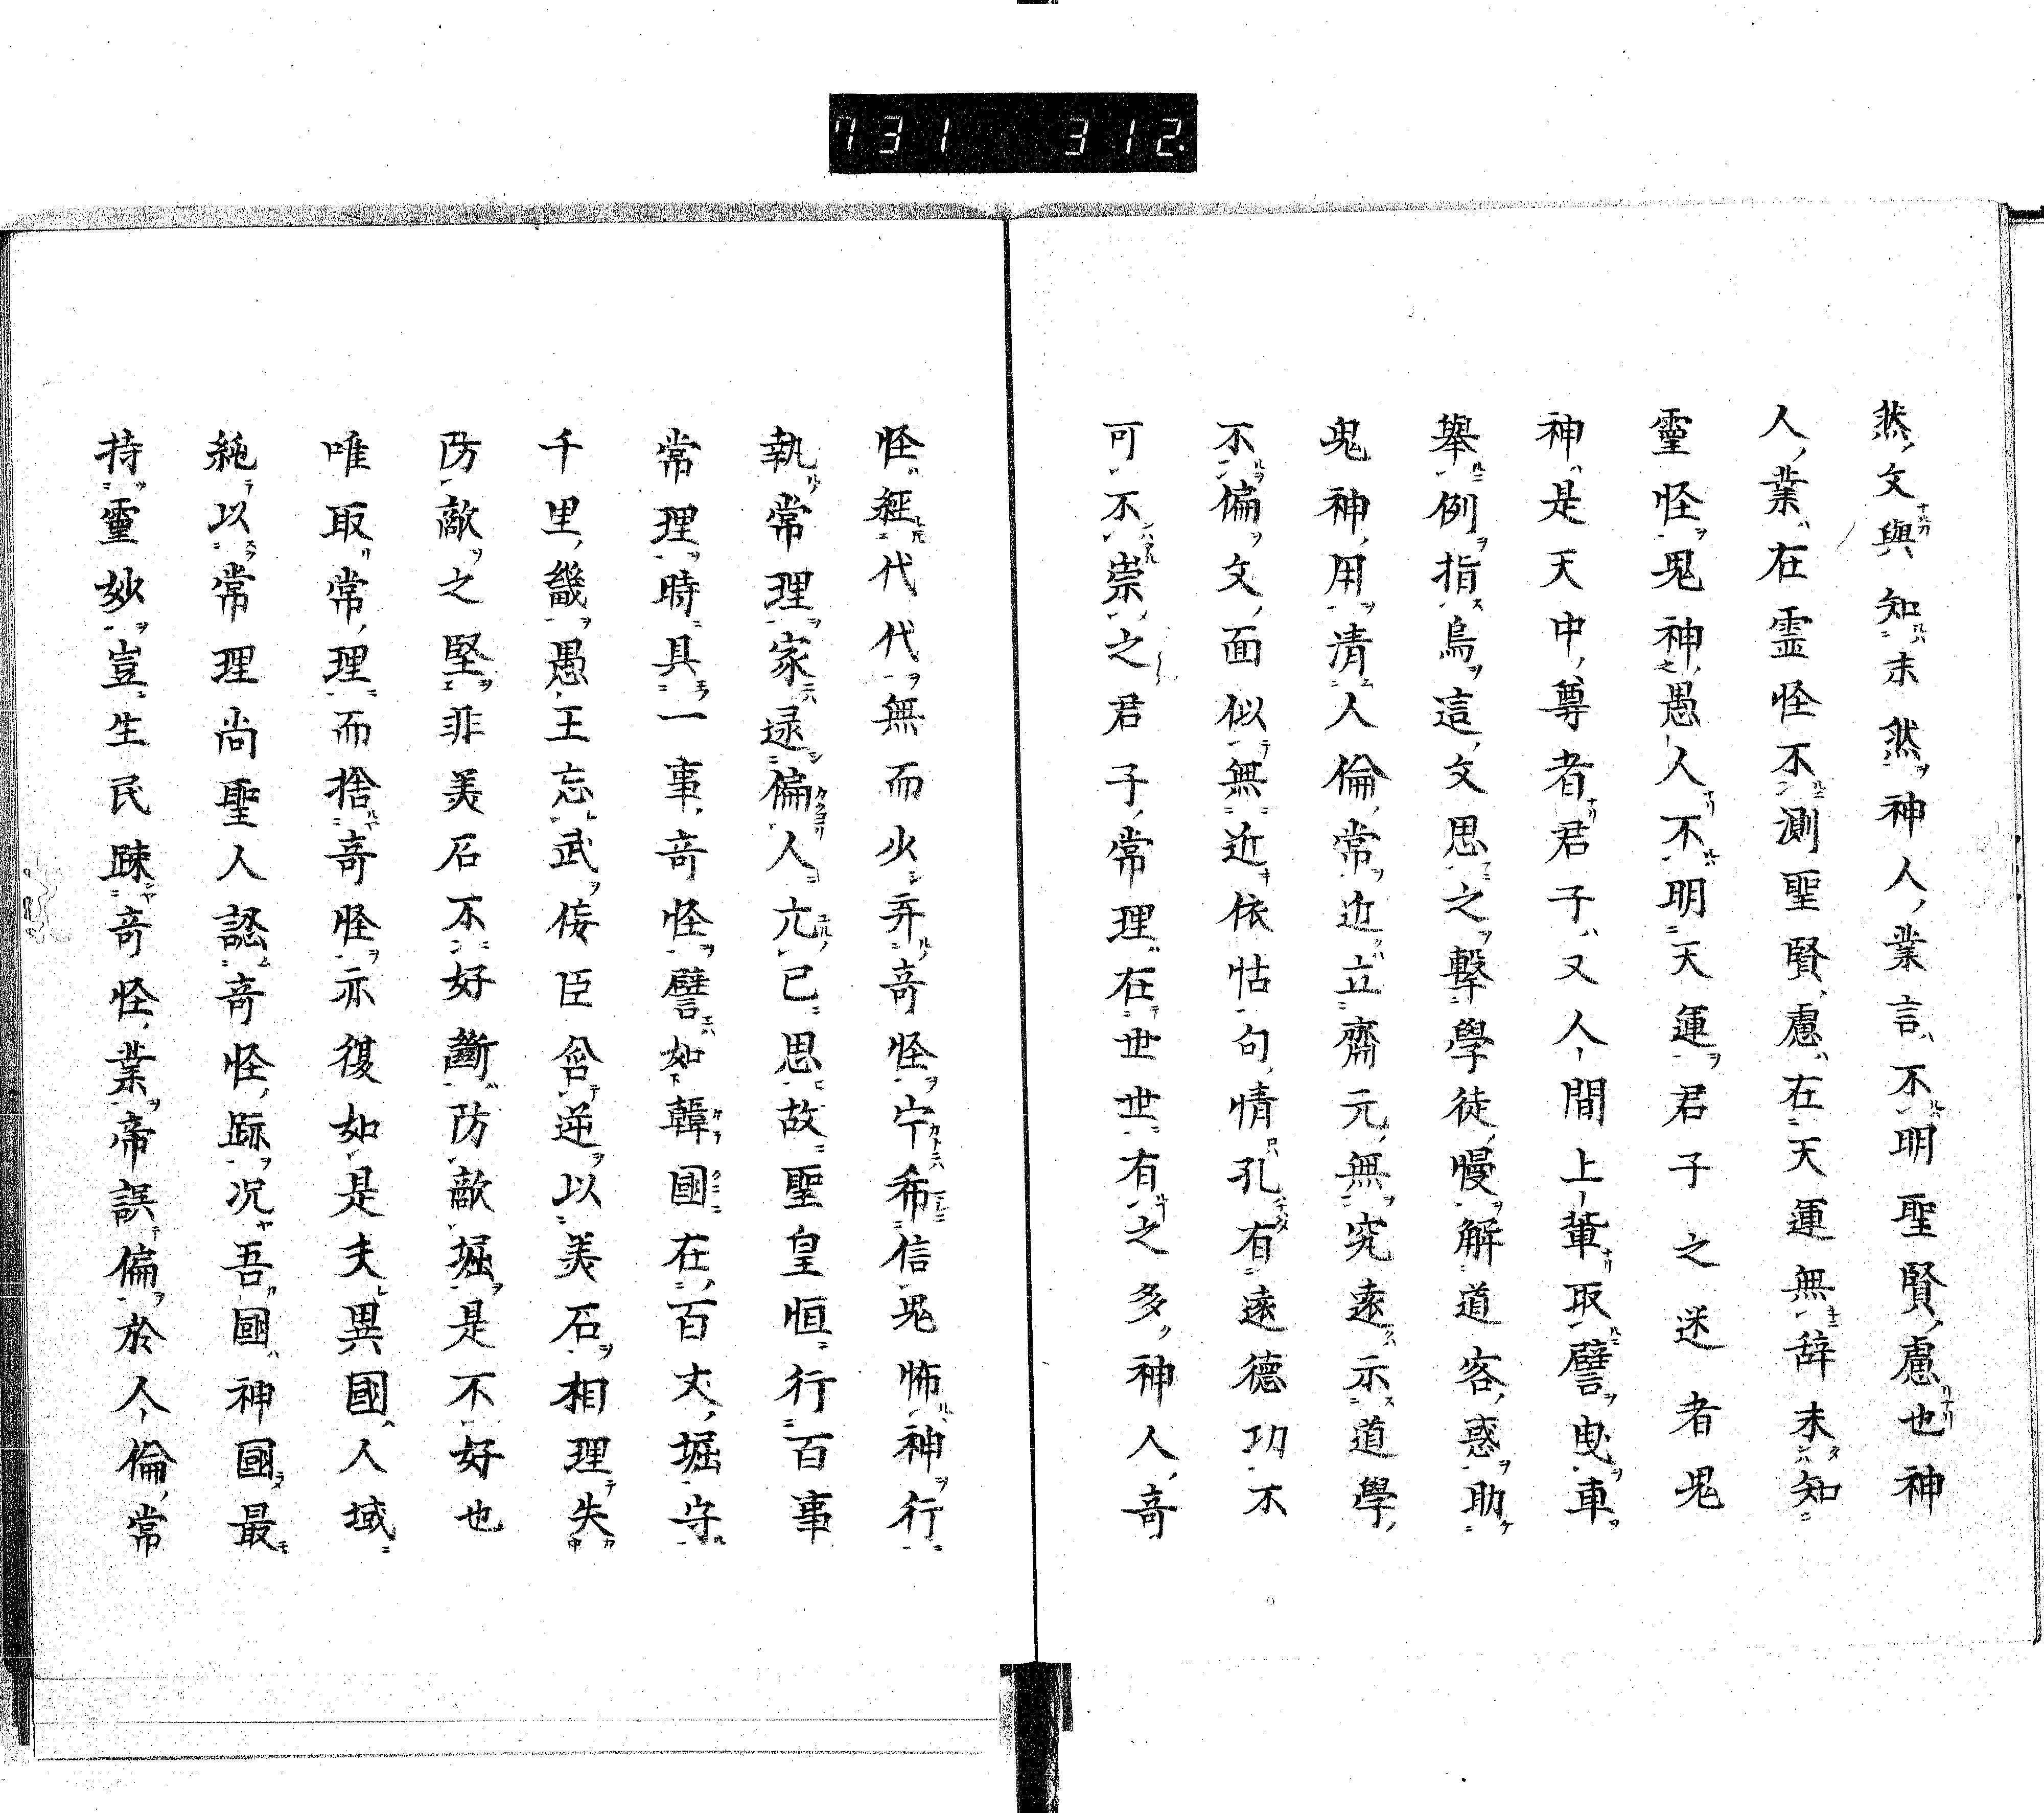 731 312.
然文與知未然神人業言不明聖賢慮也神
人業在霊怪不測聖賢慮在天運無辞未知
靈怪鬼神愚人不明天運君子之迷者鬼
神是天中尊者君子又人間上輩取譬曳車
舉例指烏這文思之擊學徒慢解道客惑助
鬼神用清人倫常近立齋元無究遠示道學
不偏文面似無近依怙句情孔有遠德功不
可不崇之君子常理在世世有之多神人奇
怪經代代無而少弃奇怪宁希信鬼怖神行
執常理家逯偏人亢已思故聖皇恒行百事
常理時具一事奇怪譬如韓國在百丈堀守
千里畿愚王忘武佞臣含逆以美石相理失
防敵之堅非美石不好斷防敵堀是不好也
唯取常理而捨奇怪亦復如是夫異國人域
純以常理尚聖人認奇怪跡况吾國神國最
持靈妙豈生民疎奇怪業帝誤偏於人倫常